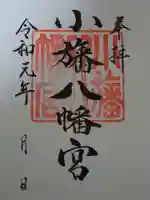 奉拝
小旛八幡宮
令和元年 月 日